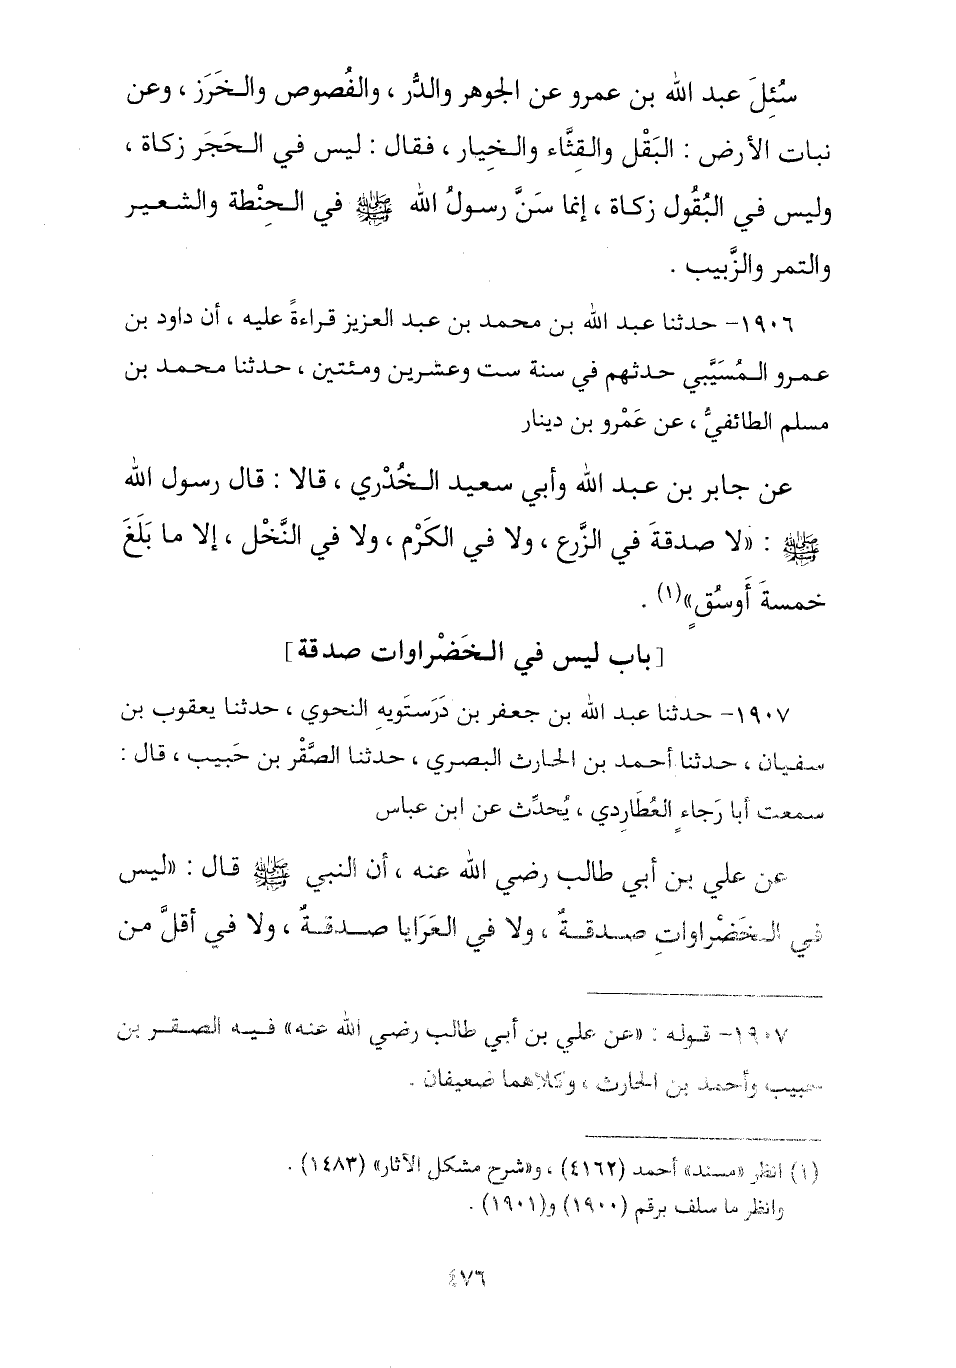 سُئِلَ عبد الله بن عمرو عن الجوهر والدُّر ، والفُصوص والخَرَز ، وعن
نبات الأرض : البَقْل والقِثَّاء والخِيار ، فقال : ليس في الحَجَر زكاة ،
وليس في البُقُول زكاة ، إنما سَنَّ رسولُ الله ﷺ في الحِنْطة والشعير
والتمر والزَّبيب .
١٩٠٦- حدثنا عبد الله بن محمد بن عبد العزيز قراءةً عليه ، أن داود بن
عمرو المُسَيَّبي حدثهم في سنة ست وعشرين ومئتين ، حدثنا محمد بن
مسلم الطائفيُّ ، عن عَمْرو بن دينار
عن جابر بن عبد الله وأبي سعيد الخُدْري ، قالا : قال رسول الله
ﷺ : «لا صدقةَ في الزَّرع ، ولا في الكَرْم ، ولا في النَّخْل ، إلا ما بَلَغَ
خمسةَ أَوسُقٍ»(١) .
[باب ليس في الخَضْراوات صدقة]
١٩٠٧- حدثنا عبد الله بن جعفر بن دَرَستَويهِ النحوي ، حدثنا يعقوب بن
سفيان ، حدثنا أحمد بن الحارث البصري ، حدثنا الصَّقْر بن حَبيب ، قال :
سمعت أبا رَجاءٍ العُطَارِدي ، يُحدِّث عن ابن عباس
عن علي بن أبي طالب رضي الله عنه ، أن النبي ﷺ قال : «ليس
في الخَضْراواتِ صدقةٌ ، ولا في العَرَايا صدقةٌ ، ولا في أقلَّ من
١٩٠٧- قوله : «عن علي بن أبي طالب رضي الله عنه» فيه الصقر بن
حبيب وأحمد بن الحارث ، وكلاهما ضعيفان .
(١) انظر «مسند» أحمد (٤١٦٢) ، و«شرح مشكل الآثار» (١٤٨٣) .
وانظر ما سلف برقم (١٩٠٠) و(١٩٠١) .
٤٧٦